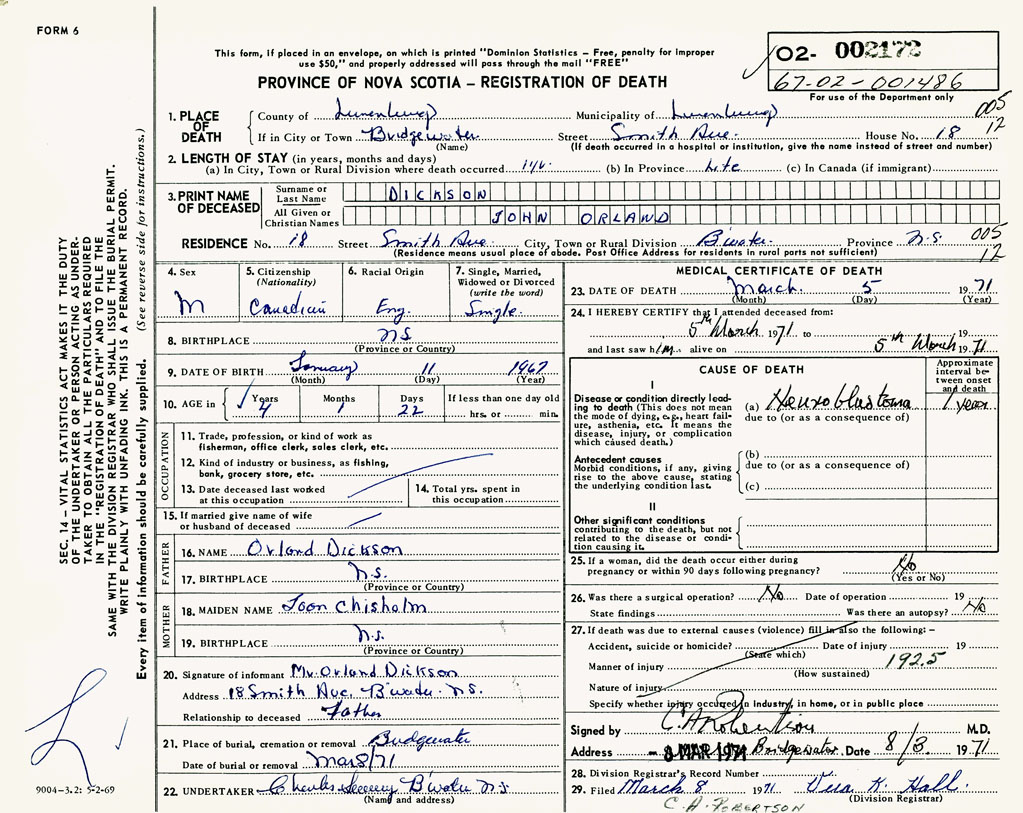 FORM 6
This form, if placed in an envelope, on which is printed "Dominion Statistics – Free, penalty for improper
use $50," and properly addressed will pass through the mail "FREE"
PROVINCE OF NOVA SCOTIA – REGISTRATION OF DEATH
02- 002172
67-02-001486
For use of the Department only
005
12
1. PLACE OF DEATH
County of Lunenburg Municipality of Lunenburg
If in City or Town Bridgewater Street Smith Ave. House No. 18
(Name) (If death occurred in a hospital or institution, give the name instead of street and number)
2. LENGTH OF STAY (in years, months and days)
(a) In City, Town or Rural Division where death occurred (b) In Province Life (c) In Canada (if immigrant)
3. PRINT NAME OF DECEASED
Surname or Last Name DICKSON
All Given or Christian Names JOHN ORLAND
RESIDENCE No. 18 Street Smith Ave City, Town or Rural Division B'water Province N.S. 005
12
(Residence means usual place of abode. Post Office Address for residents in rural parts not sufficient)
4. Sex M
5. Citizenship (Nationality) Canadian
6. Racial Origin Eng.
7. Single, Married, Widowed or Divorced (write the word) Single
8. BIRTHPLACE N.S.
(Province or Country)
9. DATE OF BIRTH January 11 1967
(Month) (Day) (Year)
10. AGE in Years 4 Months 1 Days 22 If less than one day old hrs. or min.
OCCUPATION
11. Trade, profession, or kind of work as
fisherman, office clerk, sales clerk, etc.
12. Kind of industry or business, as fishing,
bank, grocery store, etc.
13. Date deceased last worked
at this occupation
14. Total yrs. spent in
this occupation
15. If married give name of wife
or husband of deceased
FATHER
16. NAME Orland Dickson
17. BIRTHPLACE N.S.
(Province or Country)
MOTHER
18. MAIDEN NAME Joan Chisholm
19. BIRTHPLACE N.S.
(Province or Country)
20. Signature of informant Mr. Orland Dickson
Address 18 Smith Ave, B'water N.S.
Relationship to deceased Father
21. Place of burial, cremation or removal Bridgewater
Date of burial or removal Mar 8/71
22. UNDERTAKER Charles B'water N.S
(Name and address)
MEDICAL CERTIFICATE OF DEATH
23. DATE OF DEATH March 5 1971
(Month) (Day) (Year)
24. I HEREBY CERTIFY that I attended deceased from:
5th March 1971 to 19
and last saw him alive on 5th March 1971
CAUSE OF DEATH
Approximate
interval be-
tween onset
and death
I
Disease or condition directly lead-
ing to death (This does not mean
the mode of dying, e.g., heart fail-
ure, asthenia, etc. It means the
disease, injury, or complication
which caused death.)
(a) Neuroblastoma 1 year
due to (or as a consequence of)
Antecedent causes
Morbid conditions, if any, giving
rise to the above cause, stating
the underlying condition last.
(b)
due to (or as a consequence of)
(c)
II
Other significant conditions
contributing to the death, but not
related to the disease or condi-
tion causing it.
25. If a woman, did the death occur either during
pregnancy or within 90 days following pregnancy? No
(Yes or No)
26. Was there a surgical operation? No Date of operation 19
State findings Was there an autopsy? No
27. If death was due to external causes (violence) fill in also the following: –
Accident, suicide or homicide? Date of injury 19
(State which) 1925
Manner of injury
(How sustained)
Nature of injury
Specify whether injury occurred in industry, in home, or in public place
Signed by C A Robertson M.D.
Address - 8 MAR 1971 Bridgewater Date 8/3 1971
28. Division Registrar's Record Number
29. Filed March 8 1971 K. Hall
(Division Registrar)
C. A. ROBERTSON
SEC. 14 – VITAL STATISTICS ACT MAKES IT THE DUTY
OF THE UNDERTAKER OR PERSON ACTING AS UNDER-
TAKER TO OBTAIN ALL THE PARTICULARS REQUIRED
IN THE "REGISTRATION OF DEATH" AND TO FILE THE
SAME WITH THE DIVISION REGISTRAR WHO SHALL ISSUE THE BURIAL PERMIT.
WRITE PLAINLY WITH UNFADING INK. THIS IS A PERMANENT RECORD.
Every item of information should be carefully supplied. (See reverse side for instructions.)
9004-3.2: 5-2-69